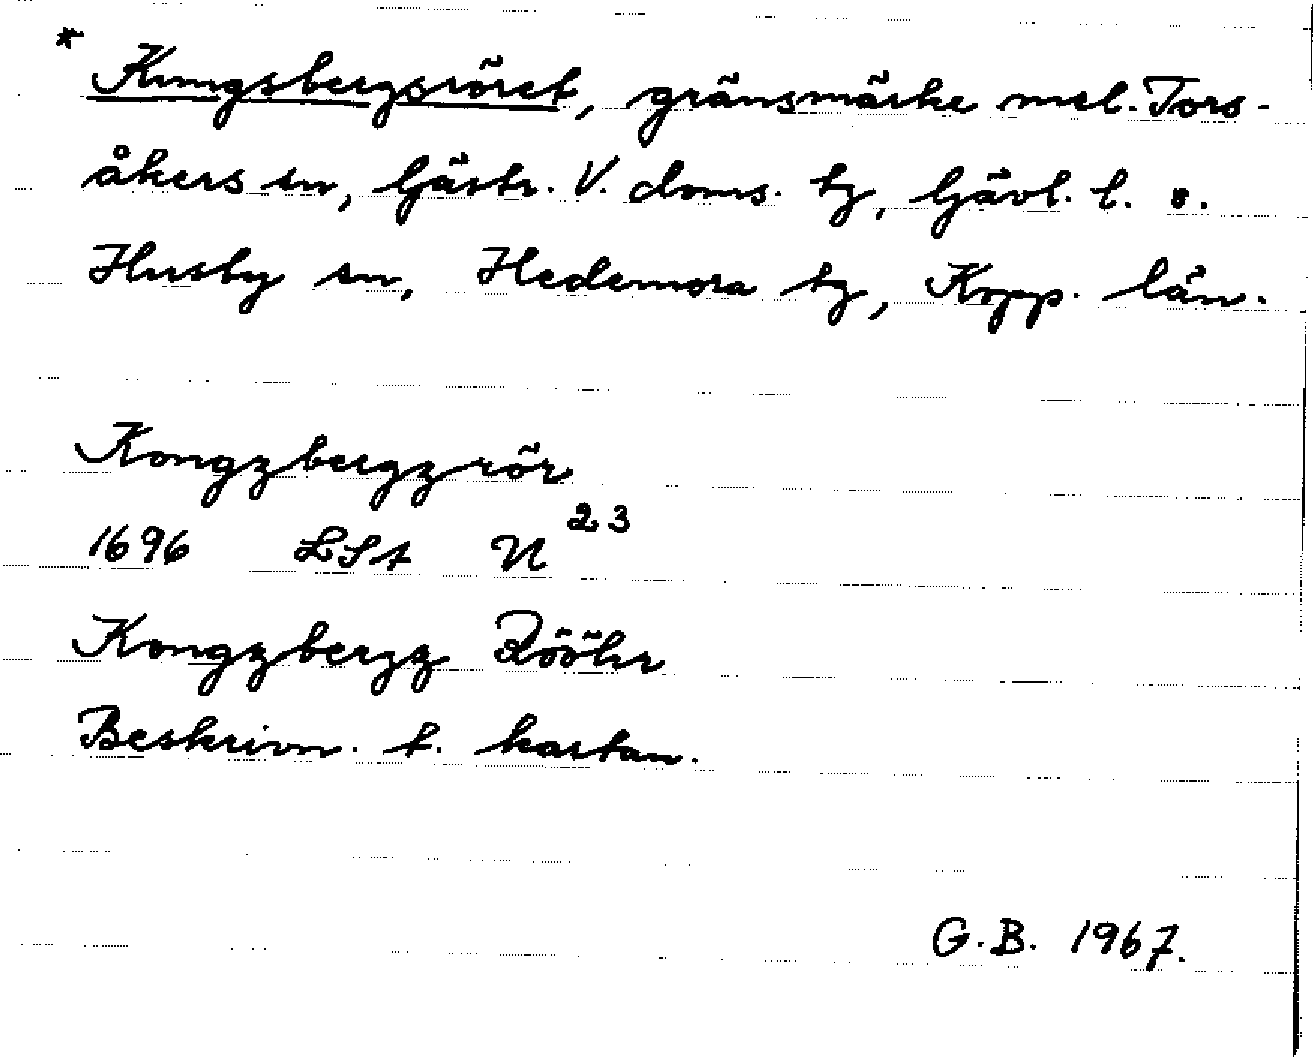 * Kungsbergsröret, gränsmärke mel. Tors-
åkers sn, Gästr. V. doms. tg, Gävl. l. o.
Husby sn, Hedemora tg, Kopp. län.
Kongzbergzrör
1696 LSt N 23
Kongzbergz Rööhr
Beskrivn. t. kartan.
G.B. 1967.